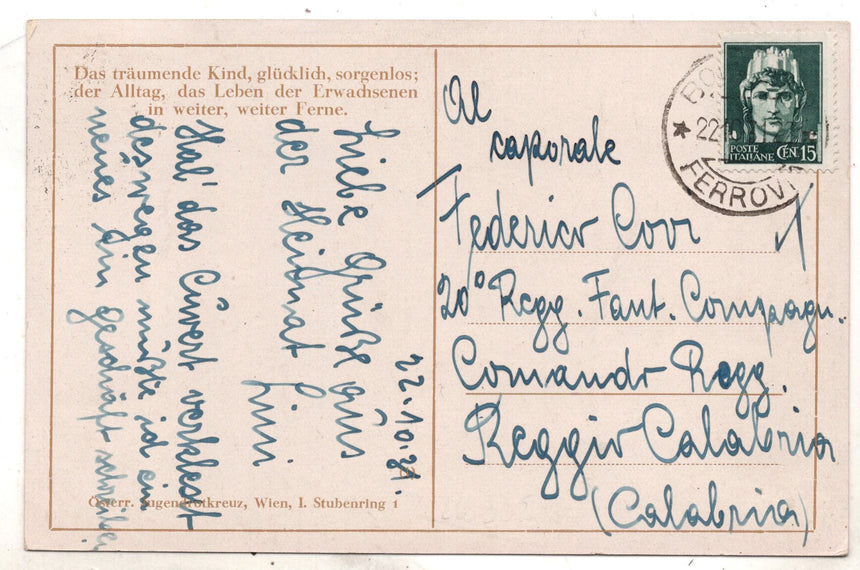 Das träumende Kind, glücklich, sorgenlos;
der Alltag, das Leben der Erwachsenen
in weiter, weiter Ferne.
22.10.31.
Liebe Grüße aus
der Heimat
Hab' das Cuvert verklebt
deswegen mußte ich ein
neues ein geschäft schreiben
Österr. Jugendrotkreuz, Wien, I. Stubenring 1
Al
caporale
Federico Covi
20° Regg. Fant. Compagn.
Comando Regg.
Reggio Calabria
(Calabria)
BO
22
FERROVI
POSTE
ITALIANE CEN. 15